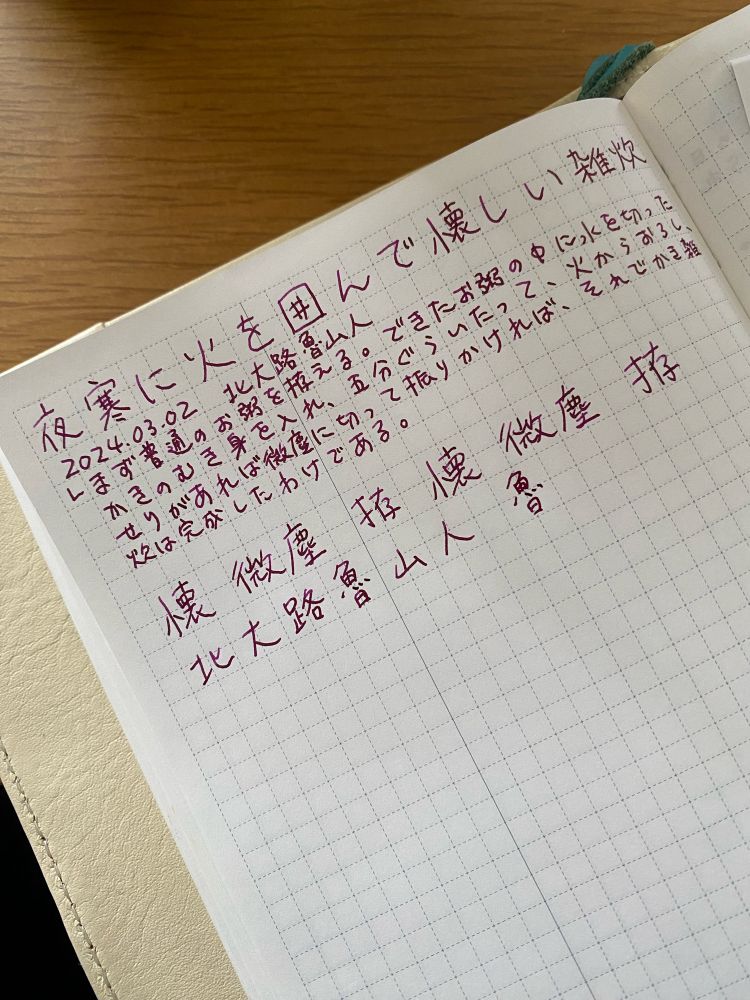 夜寒に火を囲んで懐しい雑炊
2024.03.02 北大路魯山人
しまず普通のお粥を拵える。できたお粥の中に水を切った
かきのむき身を入れ、五分ぐらいたって、火からおろし、
せりがあれば微塵に切って振りかければ、それでかき雑
炊は完成したわけである。
懐 微塵 拵 懐 微塵 拵
北大路魯山人 魯